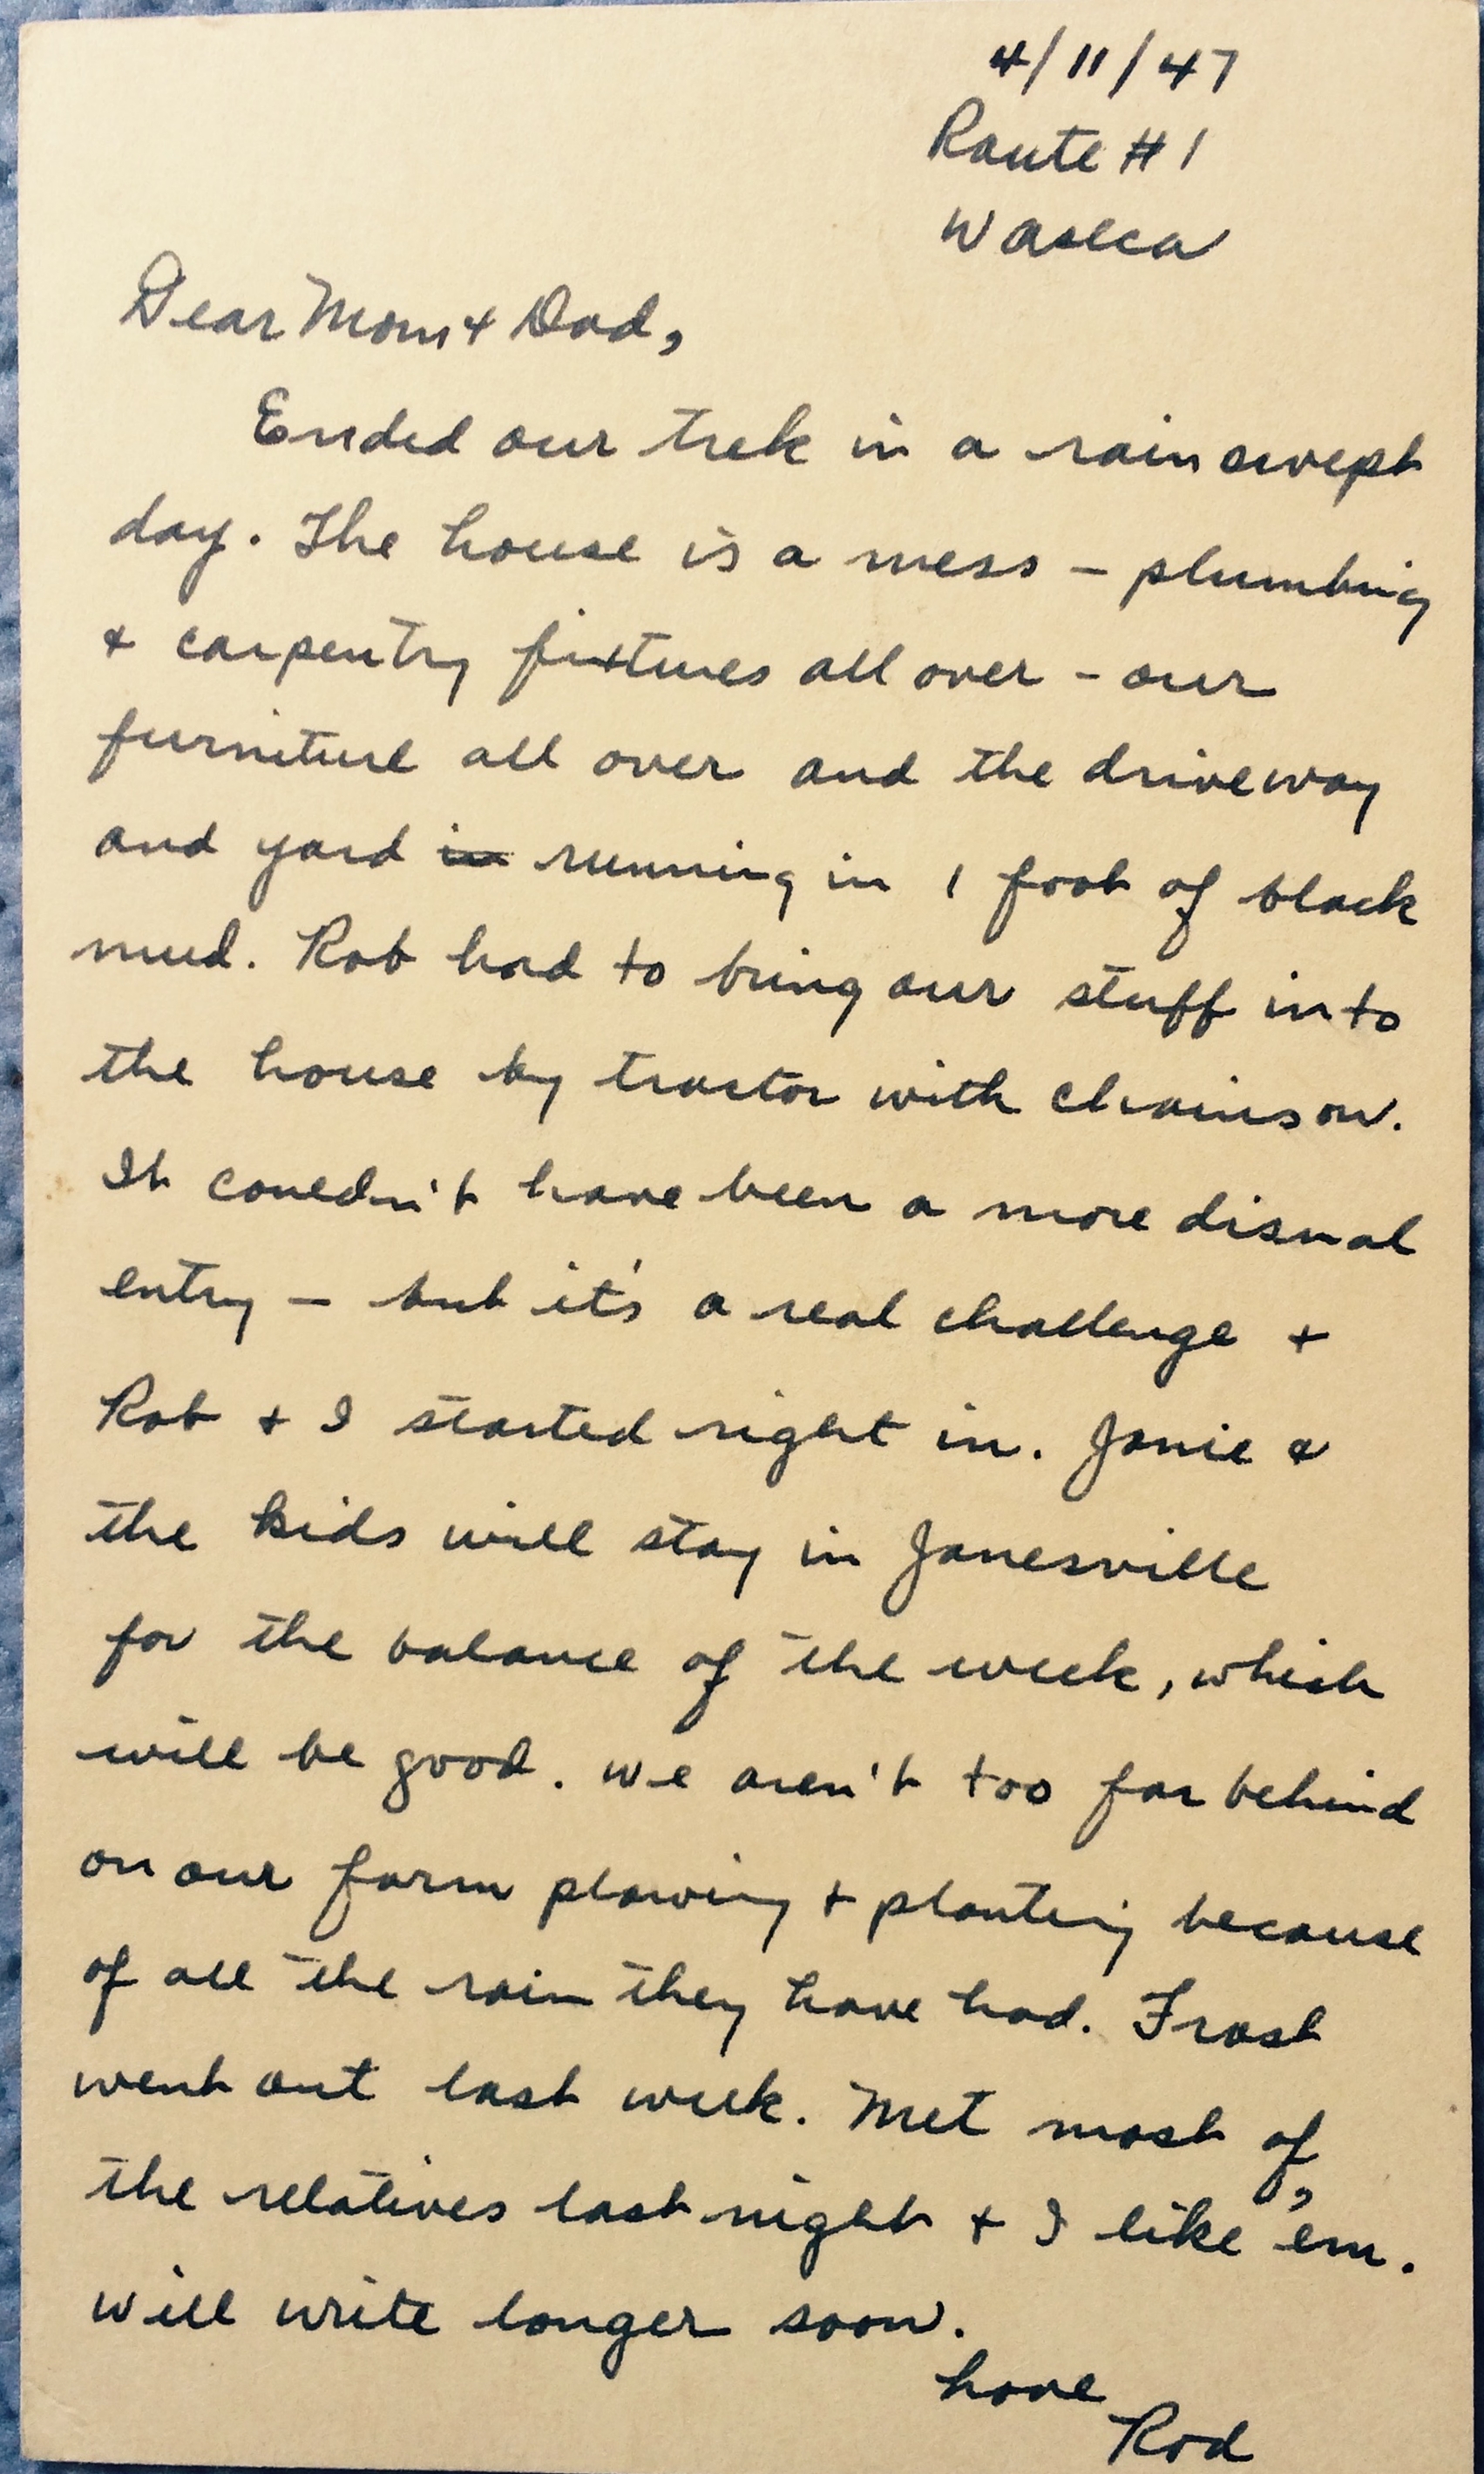 4/11/47
Route #1
Waseca
Dear Mom + Dad,
Ended our trek in a rain swept
day. The house is a mess – plumbing
+ carpentry fixtures all over – our
furniture all over and the driveway
and yard in running in 1 foot of black
mud. Rob had to bring our stuff into
the house by tractor with chains on.
It couldn't have been a more dismal
entry – but it's a real challenge +
Rob + I started right in. Janie &
the kids will stay in Janesville
for the balance of the week, which
will be good. We aren't too far behind
on our farm plowing + planting because
of all the rain they have had. Frost
went out last week. Met most of
the relatives last night + I like 'em.
Will write longer soon.
Love
Rod